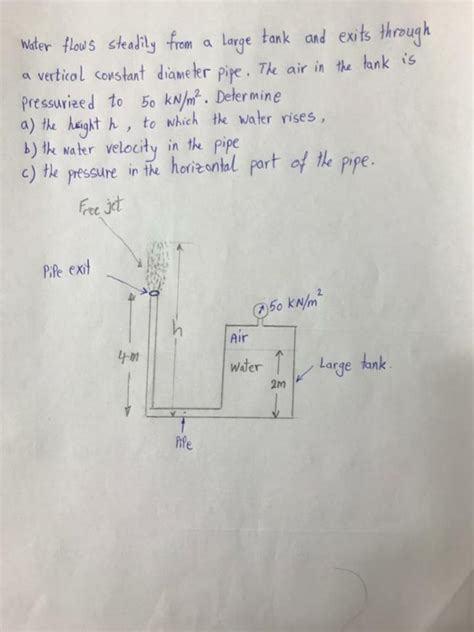 Water flows steadily from a large tank and exits through
a vertical constant diameter pipe. The air in the tank is
pressurized to 50 kN/m². Determine
a) the height h, to which the water rises,
b) the water velocity in the pipe
c) the pressure in the horizontal part of the pipe.
Free jet
Pipe exit
50 kN/m²
h
Air
4-m
Water
Large tank.
2m
Pipe